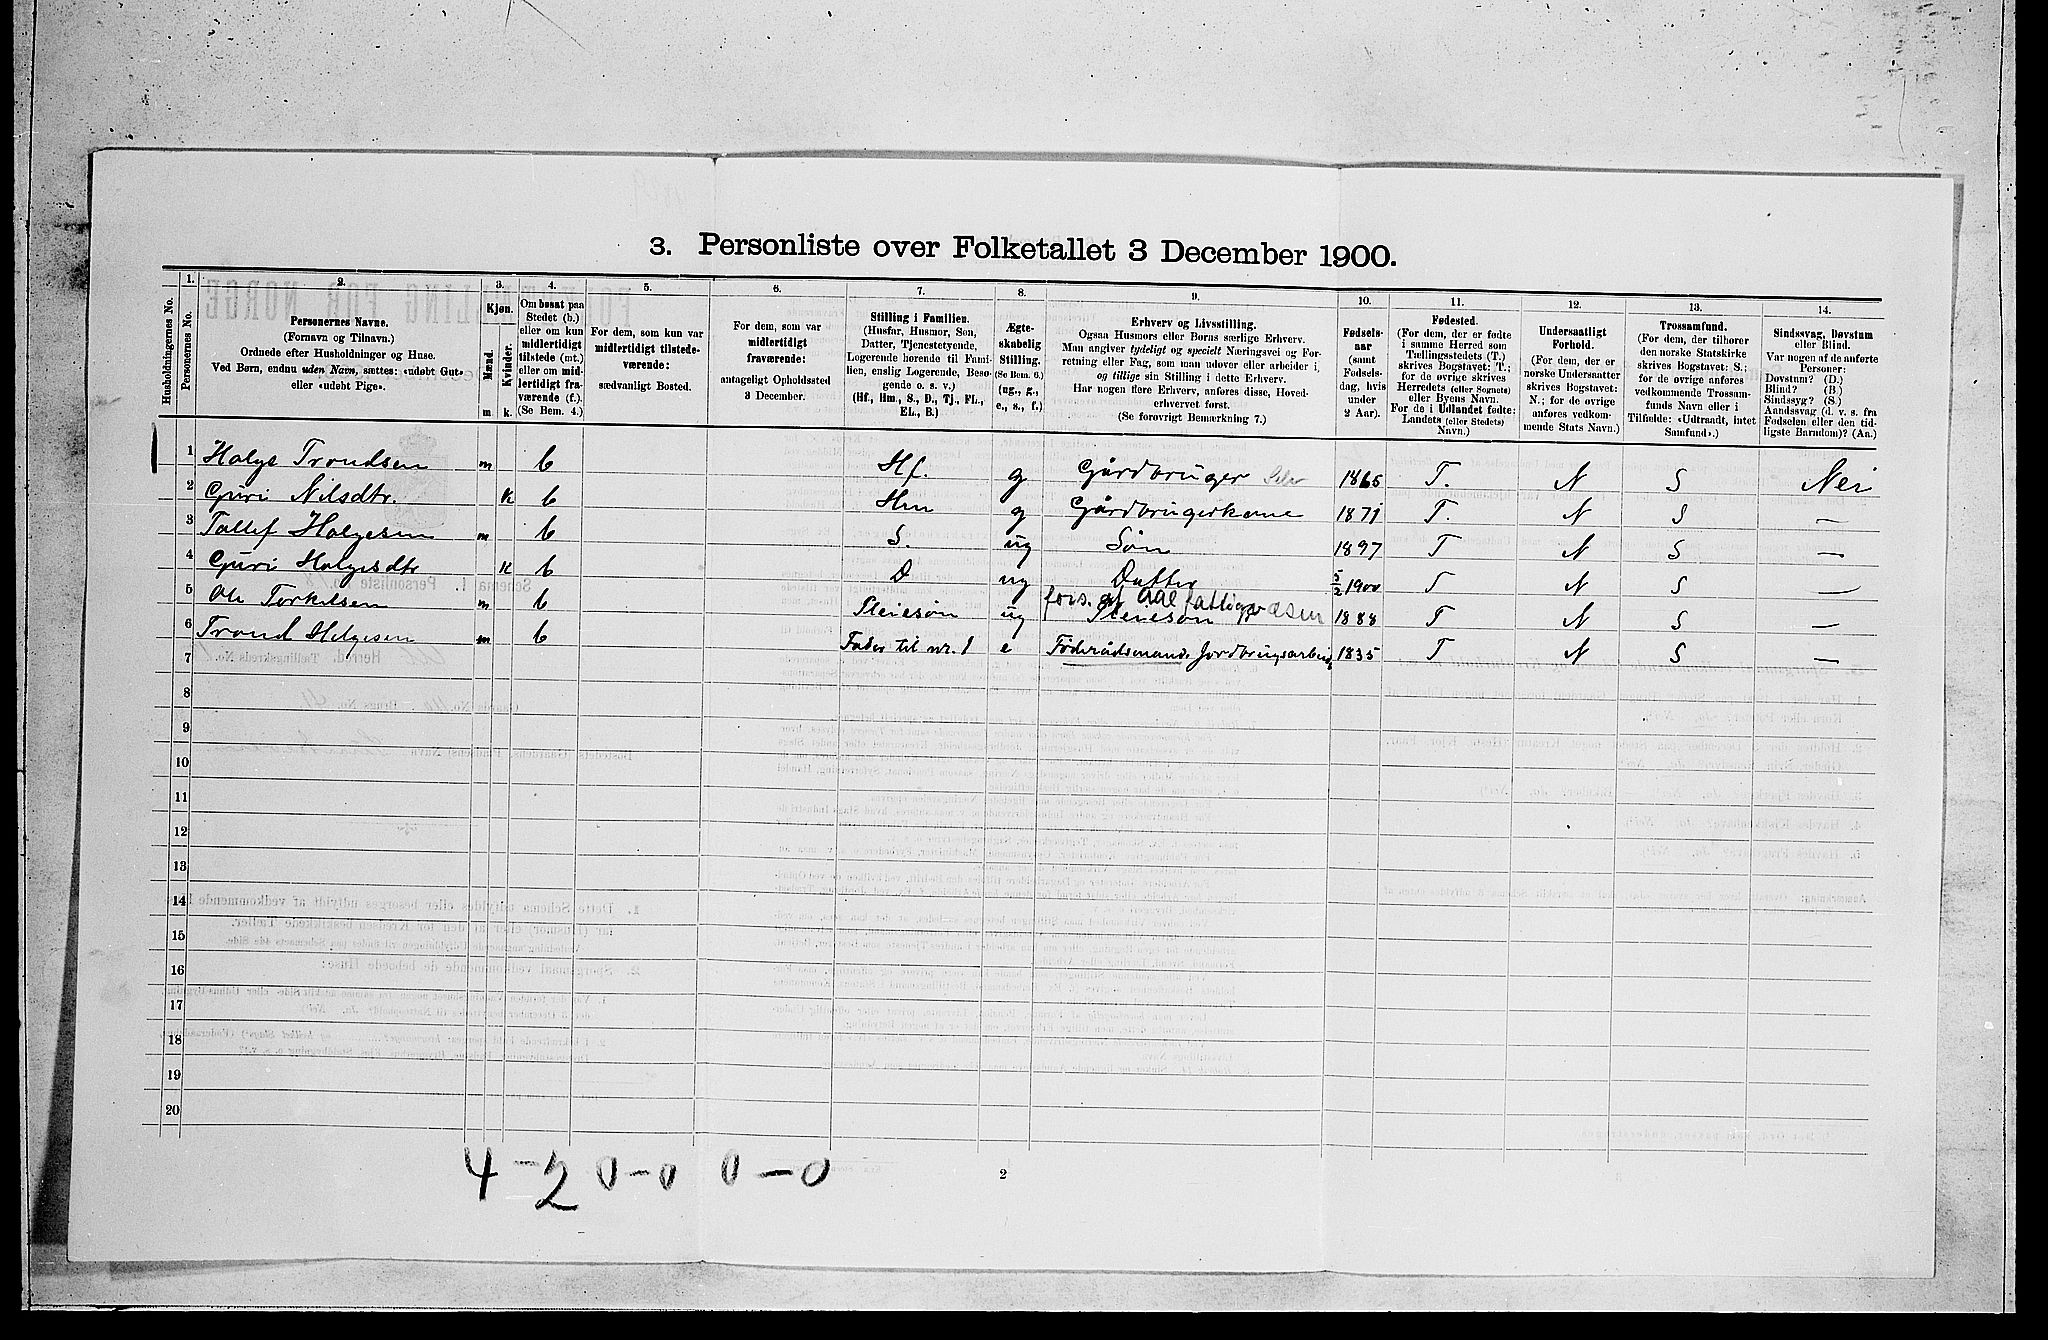 3. Personliste over Folketallet 3 December 1900.
Husholdningernes No.
1. Personernes No.
2. Personernes Navne. (Fornavn og Tilnavn.) Ordnede efter Husholdninger og Huse. Ved Børn, endnu uden Navn, sættes: «udøbt Gut» eller «udøbt Pige».
3. Kjøn. Mænd. m Kvinder. k.
4. Om bosat paa Stedet (b.) eller om kun midlertidigt tilstede (mt.) eller om midlertidigt fraværende (f.). (Se Bem. 4.)
5. For dem, som kun var midlertidigt tilstedeværende: sædvanligt Bosted.
6. For dem, som var midlertidigt fraværende: antageligt Opholdssted 3 December.
7. Stilling i Familien. (Husfar, Husmor, Søn, Datter, Tjenestetyende, Logerende hørende til Familien, enslig Logerende, Besøgende o. s. v.) (Hf., Hm., S., D., Tj., FL., EL., B.)
8. Ægteskabelig Stilling. (Se Bem. 6.) (ug., g., e., s., f.)
9. Erhverv og Livsstilling. Ogsaa Husmors eller Børns særlige Erhverv. Man angiver tydeligt og specielt Næringsvei og Forretning eller Fag, som man udøver eller arbeider i, og tillige sin Stilling i dette Erhverv. Har nogen flere Erhverv, anføres disse, Hovederhvervet først. (Se forøvrigt Bemærkning 7.)
10. Fødselsaar (samt Fødselsdag, hvis under 2 Aar).
11. Fødested. (For dem, der er fødte i samme Herred som Tællingsstedets (T.) skrives Bogstavet: T.; for de øvrige skrives Herredets (eller Sognets) eller Byens Navn. For de i Udlandet fødte: Landets (eller Stedets) Navn.)
12. Undersaatligt Forhold. (For dem, der er norske Undersaatter skrives Bogstavet: N.; for de øvrige anføres vedkommende Stats Navn.)
13. Trossamfund. (For dem, der tilhører den norske Statskirke skrives Bogstavet: S.; for de øvrige anføres vedkommende Trossamfunds Navn eller i Tilfælde: «Udtraadt, intet Samfund».)
14. Sindssvag, Døvstum eller Blind. Var nogen af de anførte Personer: Døvstum? (D.) Blind? (B.) Sindssyg? (S.) Aandssvag (d. v. s. fra Fødselen eller den tidligste Barndom)? (Aa.)
1 Holge Trondsen m b Hf. g Gårdbruger 1865 T. N S Nei
2 Guri Nilsdtr. K b Hm g Gårdbrugerkone 1871 T. N S —
3 Tollef Holgesen m b S. ug Søn 1897 T N S —
4 Guri Holgesdtr K b D ug Datter 5/2 1900 T N S —
fors. af Aal fattigvæsen
5 Ole Torkelsen m b Pleiesøn ug Pleiesøn 1888 T N S —
6 Trond Helgesen m b Fader til nr. 1 e Føderådsmand. Jordbrugsarbeid 1835 T N S —
7
8
9
10
11
12
13
14
15
16
17
18
19
20
4 – 2 0 – 0 0 – 0
2